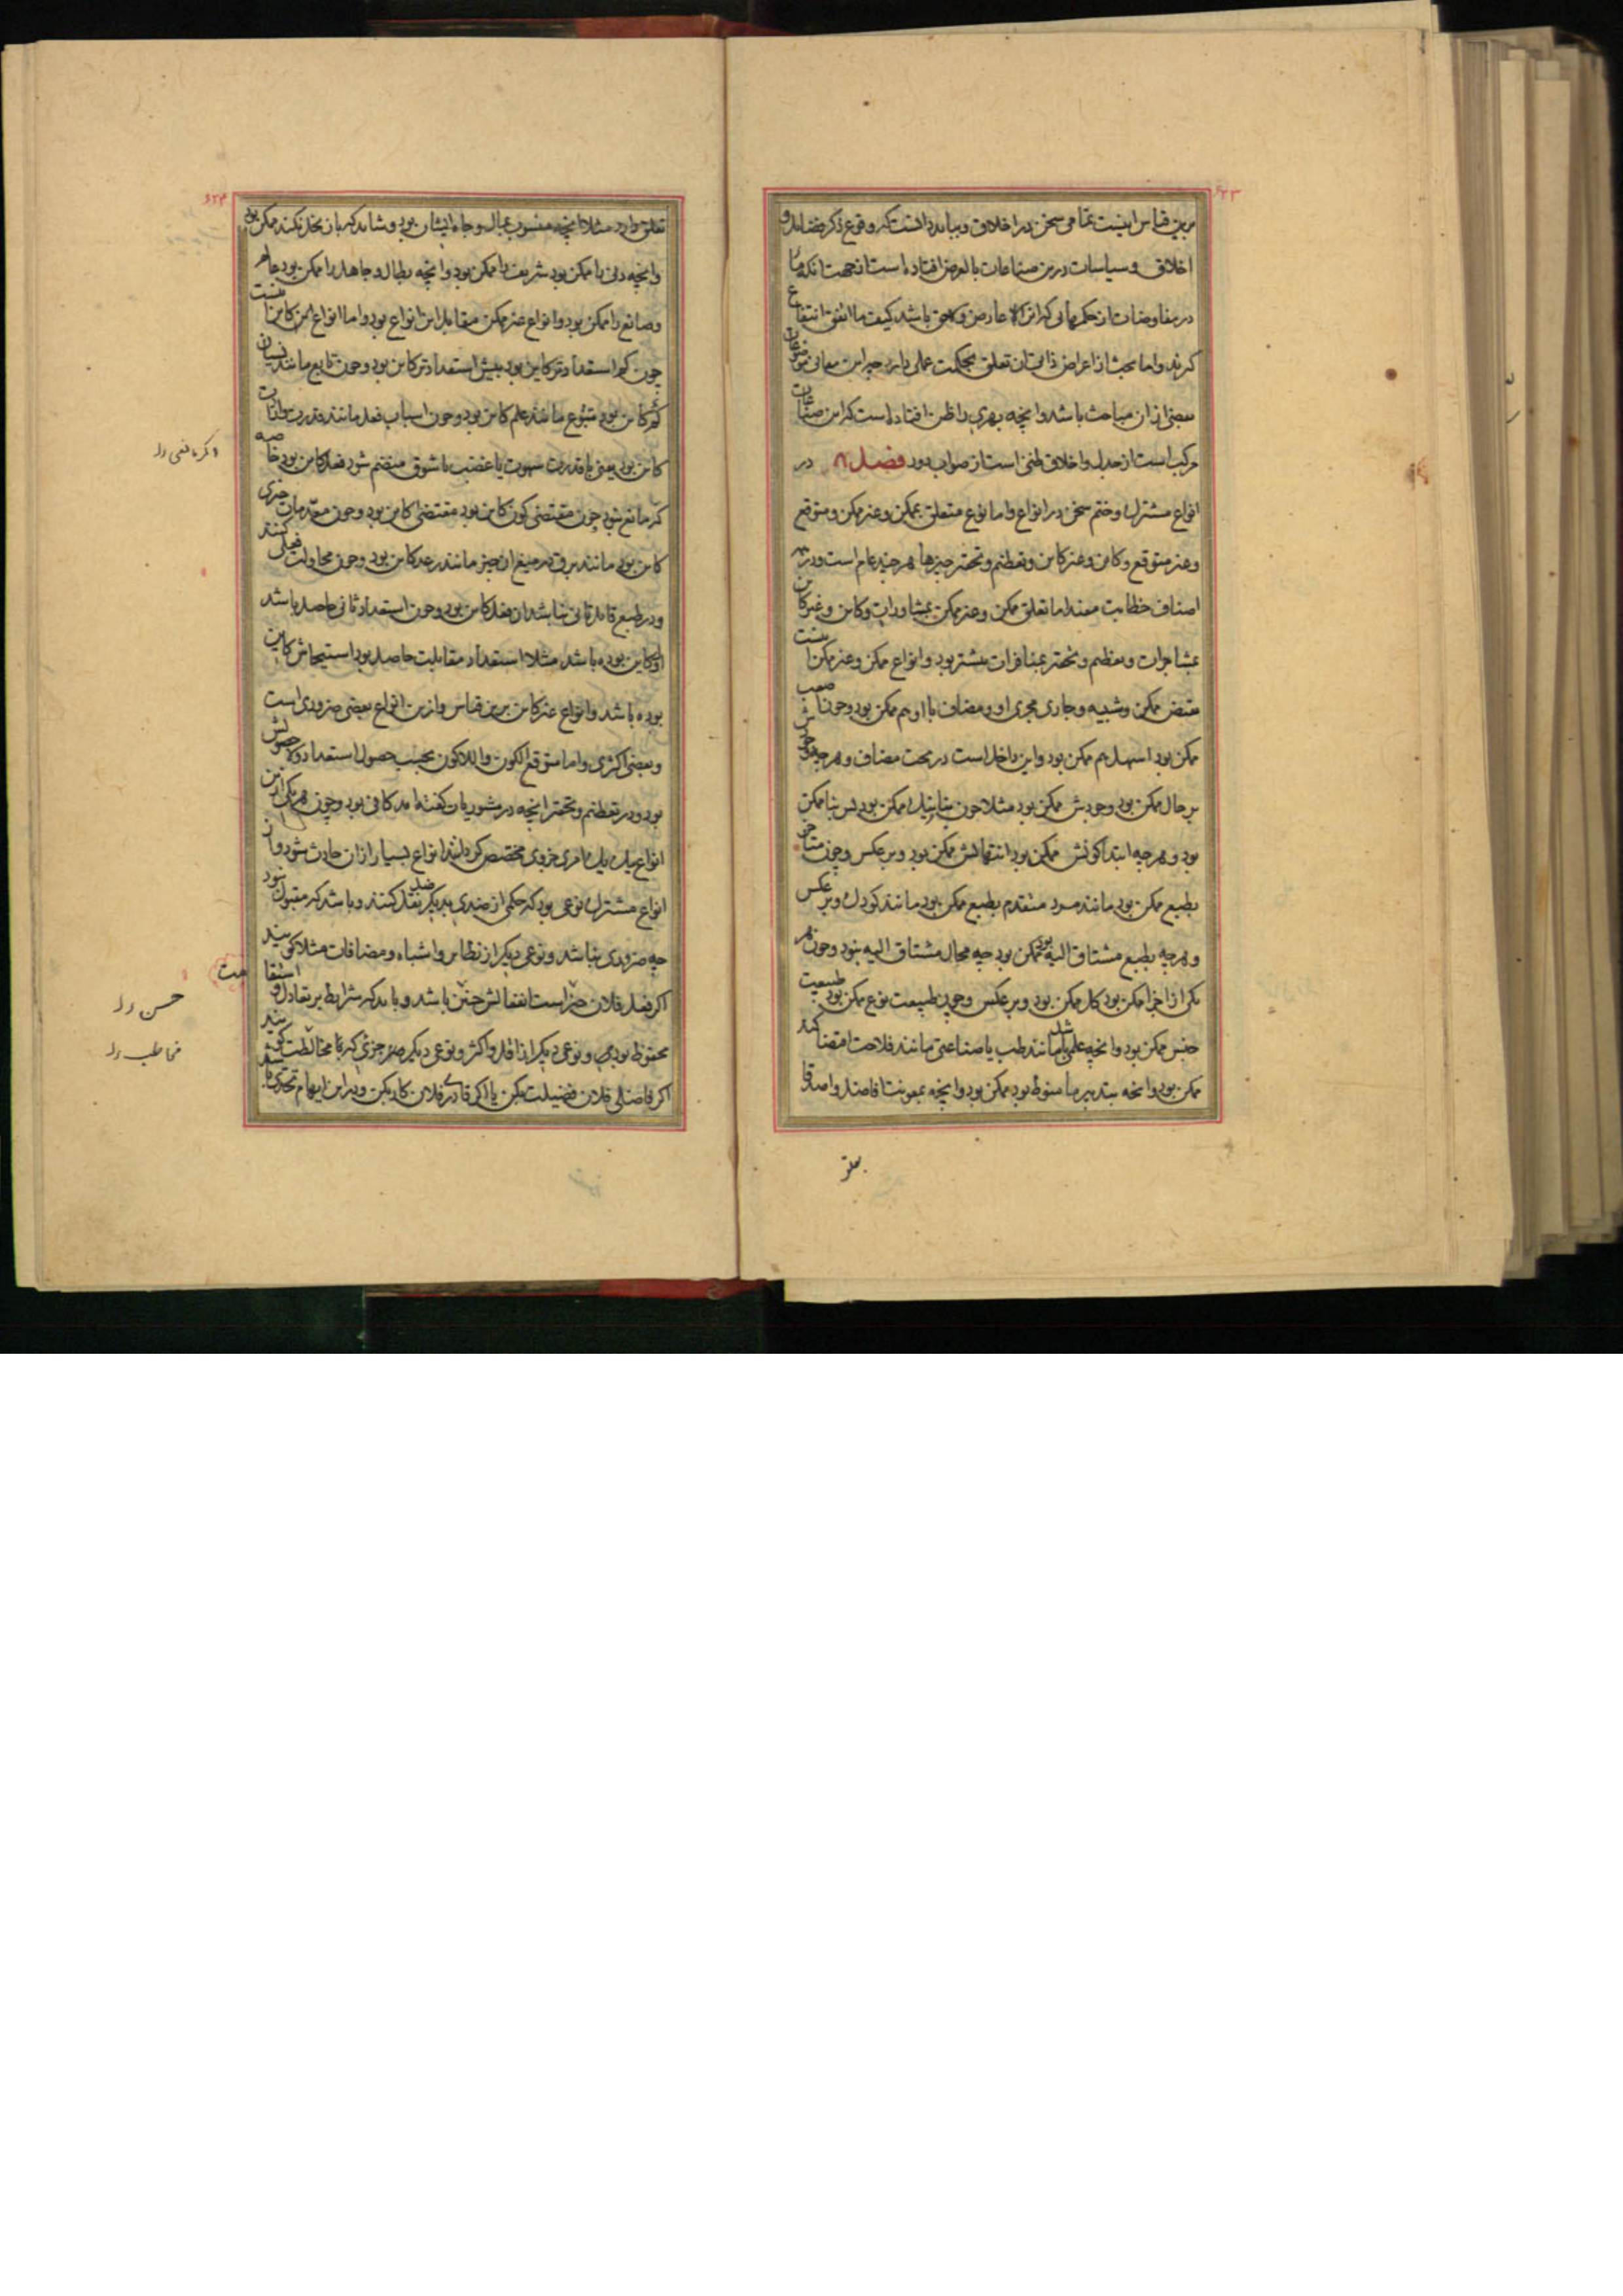 ۶۲۳
برین قیاس اینست تمامی سخن در اخلاق و بباید دانست که وقوع ذکر فضایل و
اخلاق و سیاسات درین صناعات بالعرض افتاده است از جهت آنکه
در مفاوضات از حکمهائی که آنرا عارض و لاحق باشد کیف ما اتفق انتفاع
گیرند و اما بحث از اعراض ذاتی آن تعلق بحکمت عملی دارد چه این معانی موضوعات
بعضی از آن مباحث باشد و آنچه بهری را ظن افتاده است که این صناعت
مرکب است از جدل و اخلاق ظنی است از صواب دور فصل ۸ در
انواع مشترک و ختم سخن در انواع و اما انواع متعلق بممکن و غیر ممکن و متوقع
و غیر متوقع و کاین و غیر کاین و تعظیم و تحقیر چیزها هر چند عام است و در
اصناف خطابت مفید اما تعلق ممکن و غیر ممکن بمشاورات و کاین و غیر کاین
بمشاجرات و تعظیم و تحقیر بمنافرات بیشتر بود و انواع ممکن و غیر ممکن اینست
نقیض ممکن و شبیه و جاری مجری او و مضاف با او هم ممکن بود و چون اصعب
ممکن بود اسهل هم ممکن بود و این داخل است در تحت مضاف و هر چه وجودش
بر حال ممکن بود وجودش ممکن بود مثلا چون بنا نیک ممکن بود پس بنا ممکن
بود و هر چه ابتدا کونش ممکن بود انتهائش ممکن بود و بر عکس و چون متاخر
بطبع ممکن بود مانند مرد متقدم بطبع ممکن بود مانند کودک و بر عکس
و هر چه بطبع مشتاق الیه بود ممکن بود چه محال مشتاق الیه نبود و چون هر
یکی از اجزا ممکن بود کل ممکن بود و بر عکس و چون طبیعت نوع ممکن بود طبیعت
جنس ممکن بود و آنچه علمی مانند طب یا صناعتی مانند فلاحت اقتضا کند
ممکن بود و آنچه بتدبیر ما منوط بود ممکن بود و آنچه بمعونت افاضل و اصدقا
۶۲۴
تعلق دارد مثلا آنچه منسوب بمال و جاه ایشان بود و شاید که بآن بخل نکنند ممکن بود
و آنچه دنی را ممکن بود شریف را ممکن بود و آنچه بطال و جاهل را ممکن بود ماهر
و صانع را ممکن بود و انواع غیر ممکن مقابل این انواع بود و اما انواع کاین اینست
چون کم استعدادتر کاین بود بیش استعدادتر کاین بود و چون تابع مانند نسیان
کاین بود متبوع مانند علم کاین بود و چون اسباب فعل مانند قدرت و ارادت
کاین بود یعنی با قدرت شهوت یا غضب یا شوق منضم شود فعل کاین بود خاصه
که مانع نبود چون مقتضی کون کاین بود مقتضی کاین بود و چون مقدمات چیزی
کاین بود مانند برق در میغ آن چیز مانند رعد کاین بود و چون محاولت فعلی کنند
و در طبع قابل تأبی نباشد آن فعل کاین بود و چون استعداد ثانی حاصل باشد
اول کاین بوده باشد مثلا استعداد مقابلت حاصل بود استیحاش کاین
بوده باشد و انواع غیر کاین برین قیاس و ازین انواع بعضی ضروری است
و بعضی اکثری و اما متوقع الکون و اللاکون بحسب حصول استعداد و لا حصولش
بود و در تعظیم و تحقیر آنچه در مشوریات گفته آمد کافی بود و چون هر یکی ازین
انواع یک یک با مری جزوی مختص گردانند انواع بسیار از آن حادث شود و از
انواع مشترک نوعی بود که حکمی از ضدی بدیگر ضد نقل کنند و باشد که مقبول بود
چه ضروری نباشد و نوعی دیگر از نظایر و اشباه و مضافات مثلا گویند
اگر فعل فلان خیر است انفعالش خیر باشد و باید که شرایط بر تعادل و استقامت
محفوظ بود و نوعی دیگر از اقل و اکثر و نوعی دیگر جزئی که با مخالطت گویند
اگر فاضلی فلان فضیلت بکن یا اگر قادری فلان کار بکن و در این ابهام تحدی باشد
حسن
مخاطب